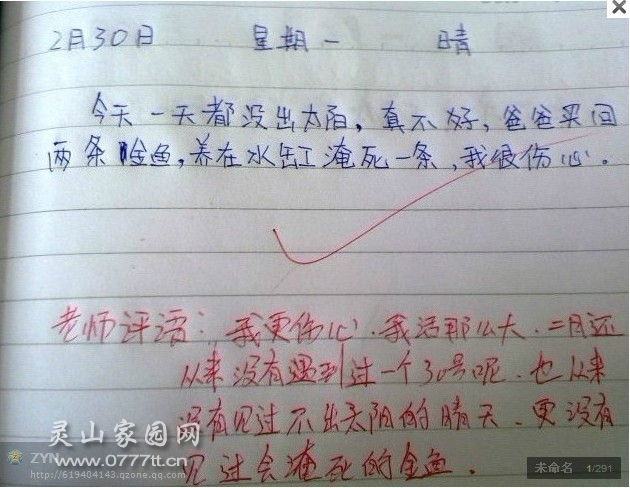 2月30日 星期一 晴
今天一天都没出太阳,真不好,爸爸买回
两条金鱼,养在水缸淹死一条,我很伤心。
老师评语:我更伤心.我活那么大.二月还
从来没有遇到过一个30号呢.也从来
没有见过不出太阳的晴天.更没有
见过会淹死的金鱼.
灵山家园网
ZYN
www.0777tt.cn
http://619404143.qzone.qq.com
未命名 1/291